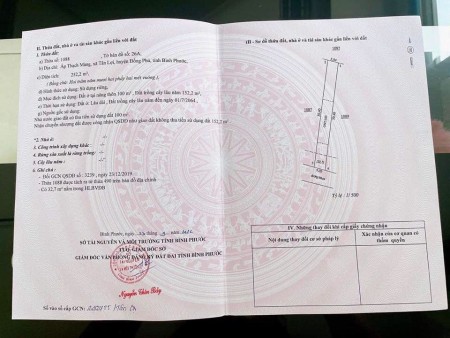 II. Thửa đất, nhà ở và tài sản khác gắn liền với đất
1. Thửa đất:
a) Thửa đất số: 1088 , Tờ bản đồ số: 26A,
b) Địa chỉ: Ấp Thạch Màng, xã Tân Lợi, huyện Đồng Phú, tỉnh Bình Phước,
c) Diện tích: 252,2 m²,
(Bằng chữ: Hai trăm năm mươi hai phẩy hai mét vuông),
d) Hình thức sử dụng: Sử dụng riêng,
đ) Mục đích sử dụng: Đất ở tại nông thôn 100 m², Đất trồng cây lâu năm 152,2 m²,
e) Thời hạn sử dụng: Đất ở: Lâu dài, Đất trồng cây lâu năm đến 01/7/2064,
g) Nguồn gốc sử dụng:
Nhà nước giao đất có thu tiền sử dụng đất 100 m²
Nhận chuyển nhượng đất được công nhận QSDĐ như giao đất không thu tiền sử dụng đất 152,2 m²
2. Nhà ở: -/-
3. Công trình xây dựng khác: -/-
4. Rừng sản xuất là rừng trồng: -/-
5. Cây lâu năm: -/-
6. Ghi chú:
- Đổi GCN QSDĐ số: 3239 , ngày 23/12/2019
- Thửa 1088 được tách từ từ thửa 490 trên bản đồ địa chính
- Có 32,7 m² nằm trong HLBVĐB
Bình Phước, ngày
SỞ TÀI NGUYÊN VÀ MÔI TRƯỜNG TỈNH BÌNH PHƯỚC
TUQ. GIÁM ĐỐC SỞ
GIÁM ĐỐC VĂN PHÒNG ĐĂNG KÝ ĐẤT ĐAI TỈNH BÌNH PHƯỚC
Số vào sổ cấp GCN:
III - Sơ đồ thửa đất, nhà ở và tài sản khác gắn liền với đất
Tỷ lệ 1/500
IV. Những thay đổi sau khi cấp giấy chứng nhận
Nội dung thay đổi và cơ sở pháp lý
Xác nhận của cơ quan có thẩm quyền